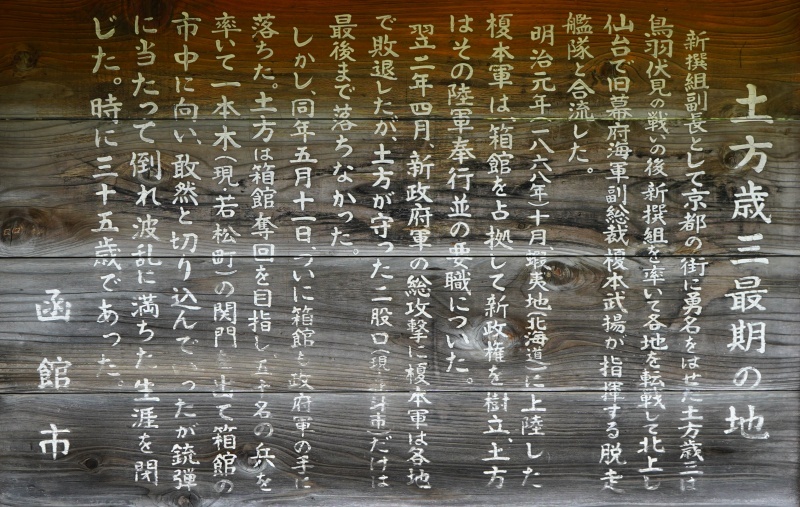 土方歳三最期の地
新撰組副長として京都の街に勇名をはせた土方歳三は
鳥羽伏見の戦いの後新撰組を率いて各地を転戦して北上し
仙台で旧幕府海軍副総裁榎本武揚が指揮する脱走
艦隊と合流した。
明治元年(一八六八年)十月、蝦夷地(北海道)に上陸した
榎本軍は、箱館を占拠して新政権を樹立、土方
はその陸軍奉行並の要職についた。
翌二年四月、新政府軍の総攻撃に榎本軍は各地
で敗退したが、土方が守った二股口(現 斗市だけは
最後まで落ちなかった。
しかし、同年五月十一日、ついに箱館も政府軍の手に
落ちた。土方は箱館奪回を目指し、五十名の兵を
率いて一本木(現若松町)の関門を出て箱館の
市中に向い、敢然と切り込んでいったが銃弾
に当たって倒れ波乱に満ちた生涯を閉
じた。時に三十五歳であった。
函館市